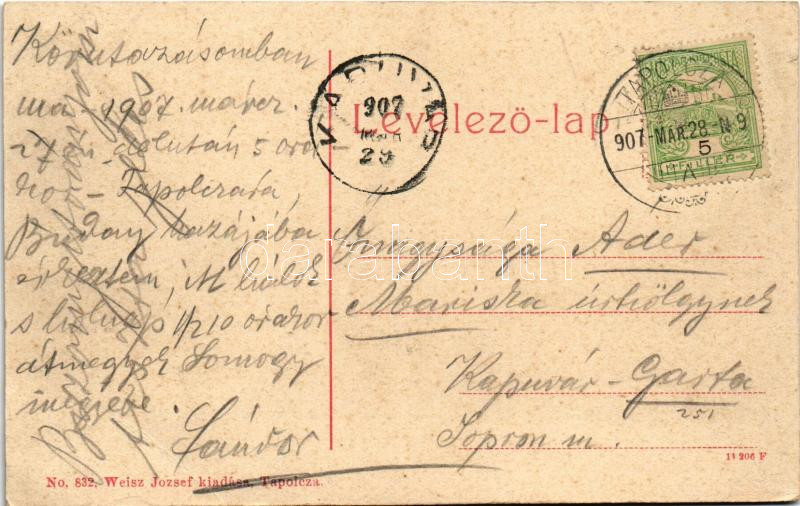 Körutazásomban
ma 1907. márcz.
27-én délután 5 óra
kor - Tapolczára,
hazájába
érkeztem, itt hálok
s holnap 1/2 10 órakor
átmegyek Somogy
megyébe.
Sándor
Levelező-lap.
TAPOLCZA
907 MAR 28 N 9
5
FILLÉR
KAPUVÁR
907
29
Őnagysága Ader
Mariska úrhölgynek
Kapuvár - Garta
251
Sopron m.
11206 F
No. 832. Weisz József kiadása, Tapolcza.
darabanth